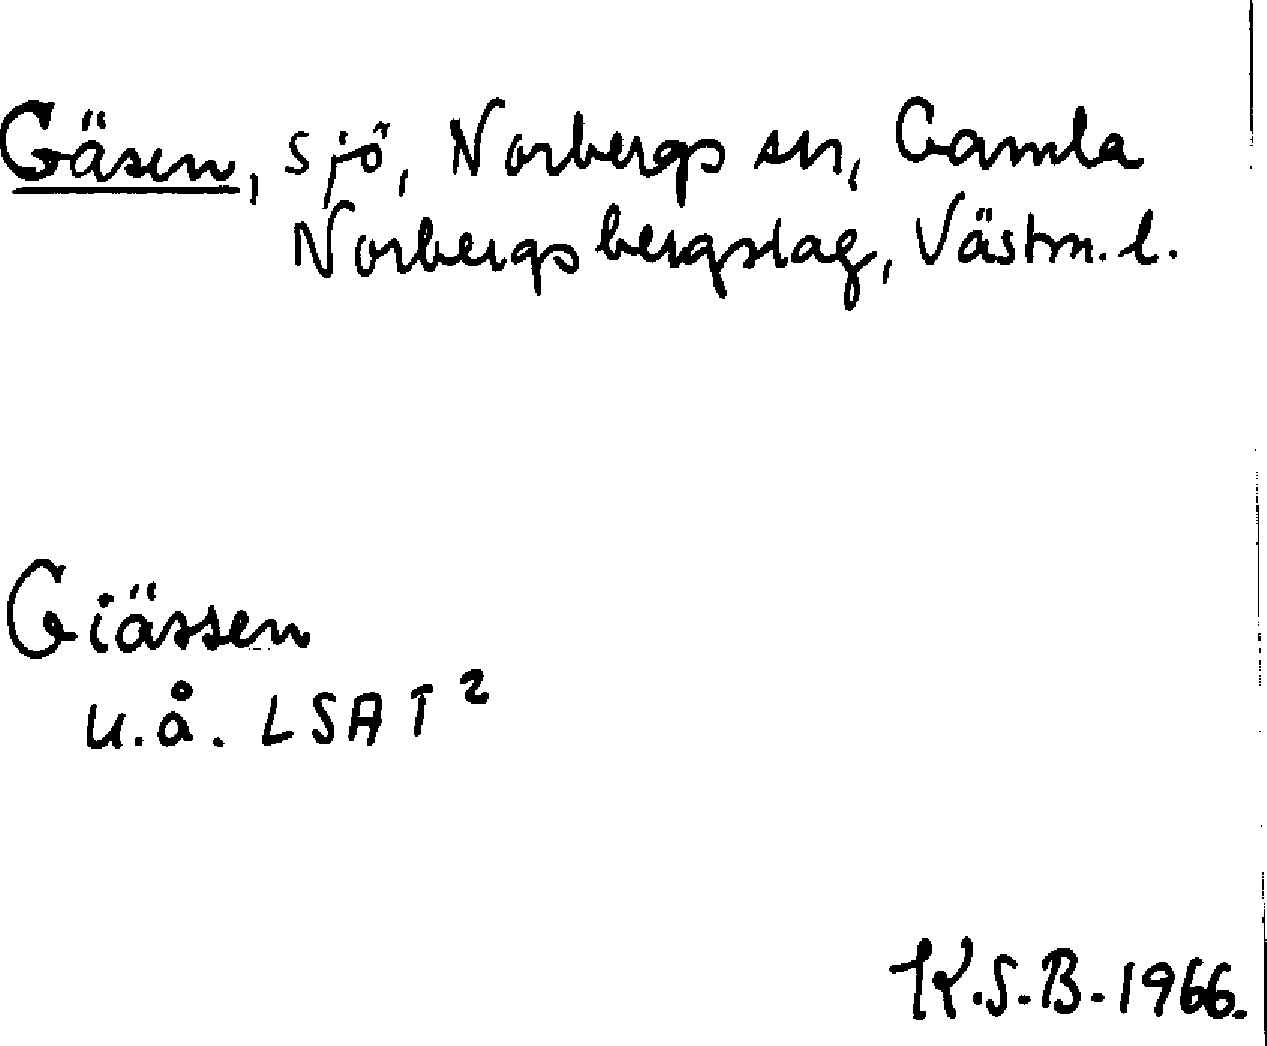 Gäsen, sjö, Norbergs sn, Gamla
Norbergs bergslag, Västm. l.
Giässen
u.å. LSA T²
K.S.B. 1966.